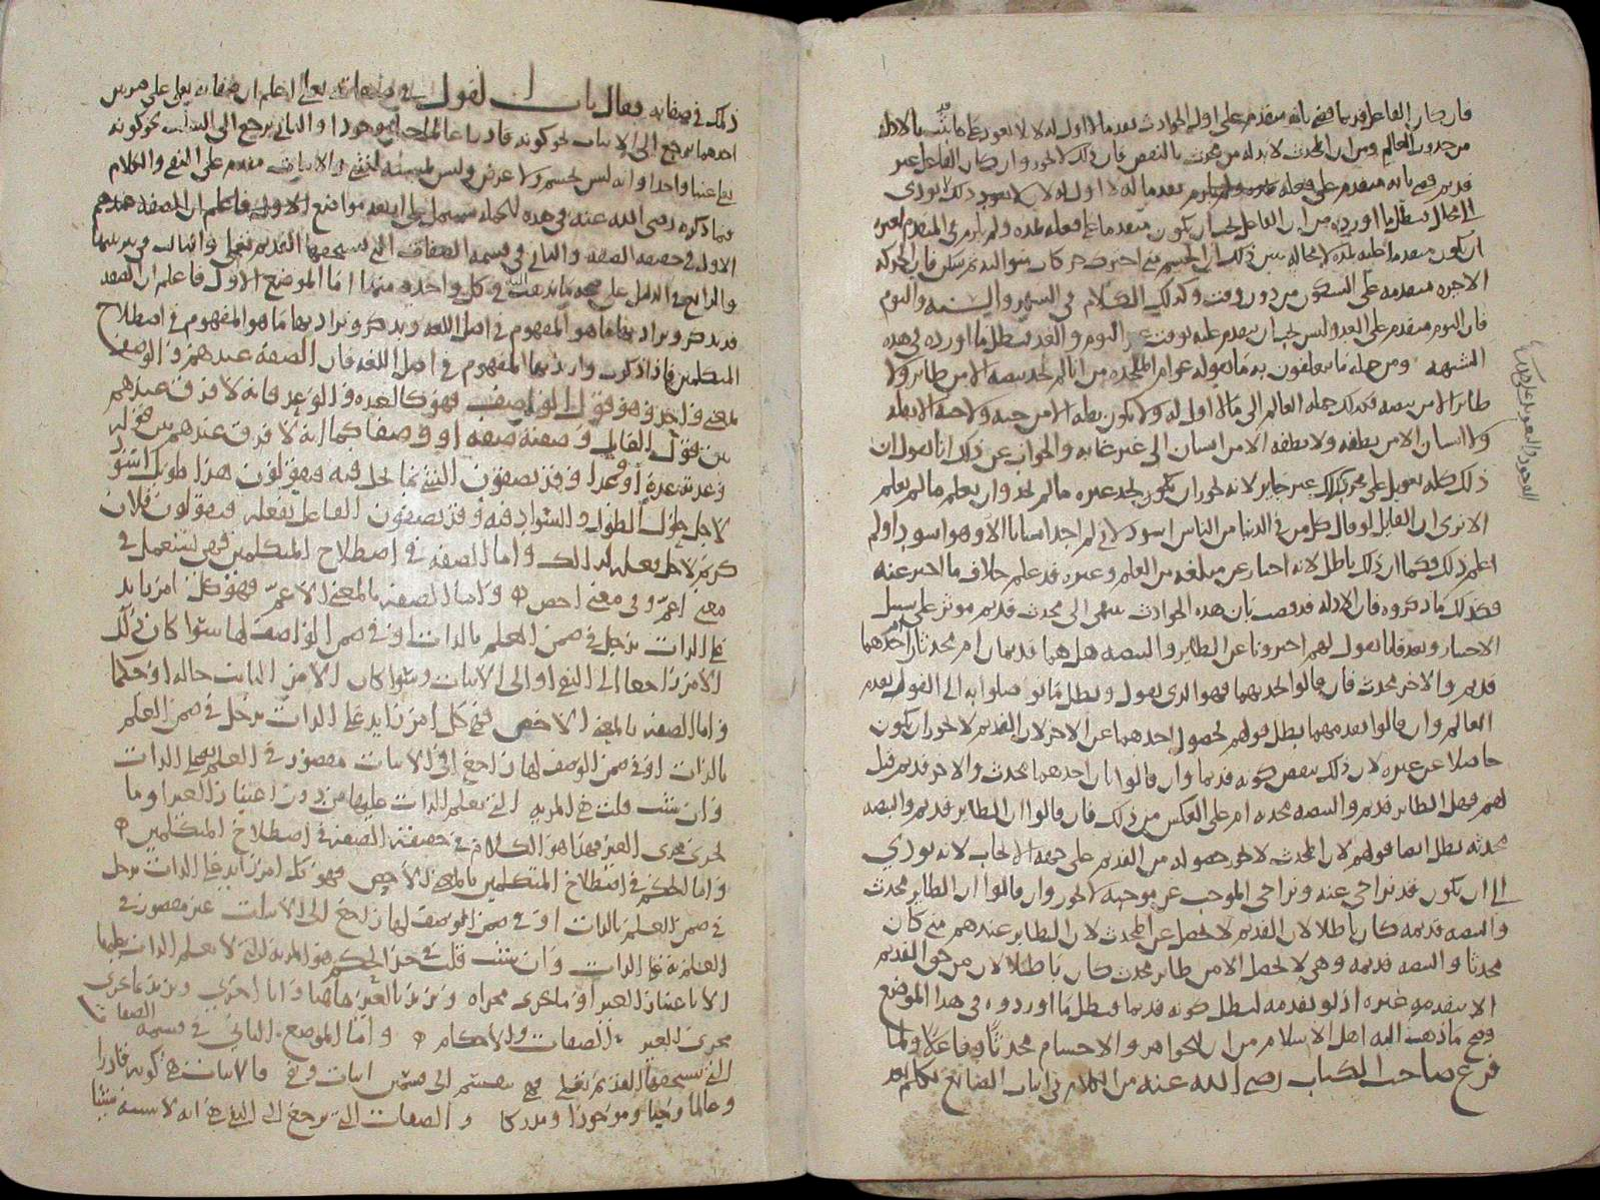 فان صار الفاعل قديما فهو بانه متقدم على اول الحوادث تقدما لا اول له لانه لا يعود على ما ثبت بالادلة
من حدوث العالم ومن ان المحدث لابد له من محدث بالنقض فان ذلك لا يجوز وان كان الفاعل غير
قديم فهو بانه متقدم على فعله تقدما له اول لانه لا يعود ذلك لا يودى
الى محال فبطل ما اورده من ان الفاعل يجب ان يكون متقدما على فعله بمدة ولم يلزم في المتقدم لغيره
ان يكون متقدما عليه بمدة لا محالة يبين ذلك ان الجسم متى احترك حركات متوالية ثم سكن فان الحركة
الاخيرة متقدمة على السكون من دون وقت وكذلك الكلام في الشهر والسنة واليوم
فان اليوم متقدم على الغد وليس يجب ان يتقدم عليه بوقت غير اليوم والغد فبطل ما اورده في هذه
الشبهة ومن جملة ما يتعلقون به ما يقوله عوام الملحدة من انا لم نجد بيضة الا من طاير ولا
طايرا الا من بيضة فكذلك جملة العالم الى ما لا اول له ولا يكون نطفة الا من حبة ولا حبة الا نطفة
ولا انسان الا من نطفة ولا نطفة الا من انسان الى غير غاية والجواب عن ذلك انا نقول ان
ذلك كله تعويل على مجرد وذلك غير جايز لانه يجوز ان يكون يجد غيره ما لم نجد وان يعلم ما لم يعلم
الا ترى ان القايل لو قال كل من في الدنيا من الناس اسود لاني لم اجد انسانا الا وهو اسود او لم
اعلم ذلك فكما ان ذلك باطل لانه اخبار عن مبلغه من العلم وغيره قد علم خلاف ما اخبر عنه
فكذلك ما ذكروه فان الادلة قد قضت بان هذه الحوادث تنتهي الى محدث قديم موثر على سبيل
الاختيار وبعد فانا نقول لهم اخبرونا عن الطاير والبيضة هل هما قديمان ام محدثان ام احدهما
قديم والاخر محدث فان قالوا بحدوثهما فهو الذي نقول وبطل ما توصلوا به الى القول بقدم
العالم وان قالوا بقدمهما بطل قولهم بحصول احدهما عن الاخر لان القديم لا يجوز ان يكون
حاصلا عن غيره لان ذلك ينقض كونه قديما وان قالوا بان احدهما محدث والاخر قديم قيل
لهم فهل الطاير قديم والبيضة محدثة ام على العكس من ذلك فان قالوا ان الطاير قديم والبيضة
محدثة بطل ايضا قولهم لان المحدث لا يجوز حصوله من القديم على جهة الايجاب لانه يودي
الى ان يكون قد تراخى عنه وتراخي الموجب عن موجبه لا يجوز وان قالوا ان الطاير محدث
والبيضة قديمة كان باطلا لان القديم لا يحصل عن المحدث لان الطاير عندهم متى كان
محدثا والبيضة قديمة وهي لا تحصل الا من طاير محدث كان باطلا لان من حق القديم
الا يتقدمه غيره اذ لو تقدمه لبطل كونه قديما فبطل ما اوردوه في هذا الموضع
وصح ما ذهب اليه اهل الاسلام من ان للجواهر والاجسام محدثا وفاعلا ولما
فرغ صاحب الكتاب رضي الله عنه من الكلام في اثبات الصانع تكلم بعد
ذلك في صفاته فقال باب القول في صفاته تعالى اعلم ان صفاته تعالى على ضربين
احدهما يرجع الى الاثبات نحو كونه قادرا عالما حيا موجودا والثاني يرجع الى النفي نحو كونه
غنيا واحدا وانه ليس بجسم ولا عرض وليس لمشبه والاثبات مقدم على النفي والكلام
فيما ذكره رضي الله عنه في هذه الجملة يشتمل على اربعة مواضع
الاول في حقيقة الصفة والثاني في قسمة الصفات التي يستحقها القديم تعالى والثالث في ترتيبها
والرابع في الدليل على صحة ما نذهب اليه في كل واحدة منها اما الموضع الاول فاعلم ان الصفة
قد تذكر ويراد بها ما هو المفهوم في اصل اللغة وتذكر ويراد بها ما هو المفهوم في اصطلاح
المتكلمين فاذا ذكرت واريد بها المفهوم في اصل اللغة فان الصفة عندهم والوصف
بمعنى واحد وهو قول الواصف فهو كالعدة والوعد فانه لا فرق عندهم
بين قول القايل وصفته صفة او وصفا كما انه لا فرق عندهم بين قوله
وعدته عدة او وعدا وقد يصفون الشي بما يحل فيه فيقولون هذا طويل اسود
لاجل حلول الطول والسواد فيه وقد يصفون الفاعل بفعله فيقولون فلان
كريم لاجل فعله لذلك واما الصفة في اصطلاح المتكلمين فهي تستعمل في
معنى اعم وفي معنى اخص واما الصفة بالمعنى الاعم فهو كل امر زايد
على الذات يدخل في ضمن العلم بالذات او في ضمن الوصف لها سوا كان ذلك
الامر راجعا الى النفي او الى الاثبات وسوا كان الامر الثابت حالة او حكما
واما الصفة بالمعنى الاخص فهي كل امر زايد على الذات يدخل في ضمن العلم
بالذات او في ضمن الوصف لها راجع الى الاثبات مقصور في العلم به على الذات
وان شئت قلت هي المزية التي تعلم الذات عليها من دون اعتبار الغير او ما
يجري مجرى الغير فهذا هو الكلام في حقيقة الصفة في اصطلاح المتكلمين
واما الحكم في اصطلاح المتكلمين بالمعنى الاخص فهو كل امر زايد على الذات يدخل
في ضمن العلم بالذات او في ضمن الوصف لها راجع الى الاثبات غير مقصور في
العلم به على الذات وان شئت قلت في حد الحكم هو المزية التي لا تعلم الذات عليها
الا باعتبار الغير او ما يجري مجراه ونريد بالغير هاهنا ذاتا اخرى ونريد بما يجري
مجرى الغير الصفات والاحكام واما الموضع الثاني في قسمة الصفات
التي يستحقها القديم تعالى فهي تنقسم الى قسمين اثبات ونفي فالاثبات هو كونه قادرا
وعالما وحيا وموجودا ومدركا والصفات التي ترجع الى النفي هي انه لا يشبه شيئا